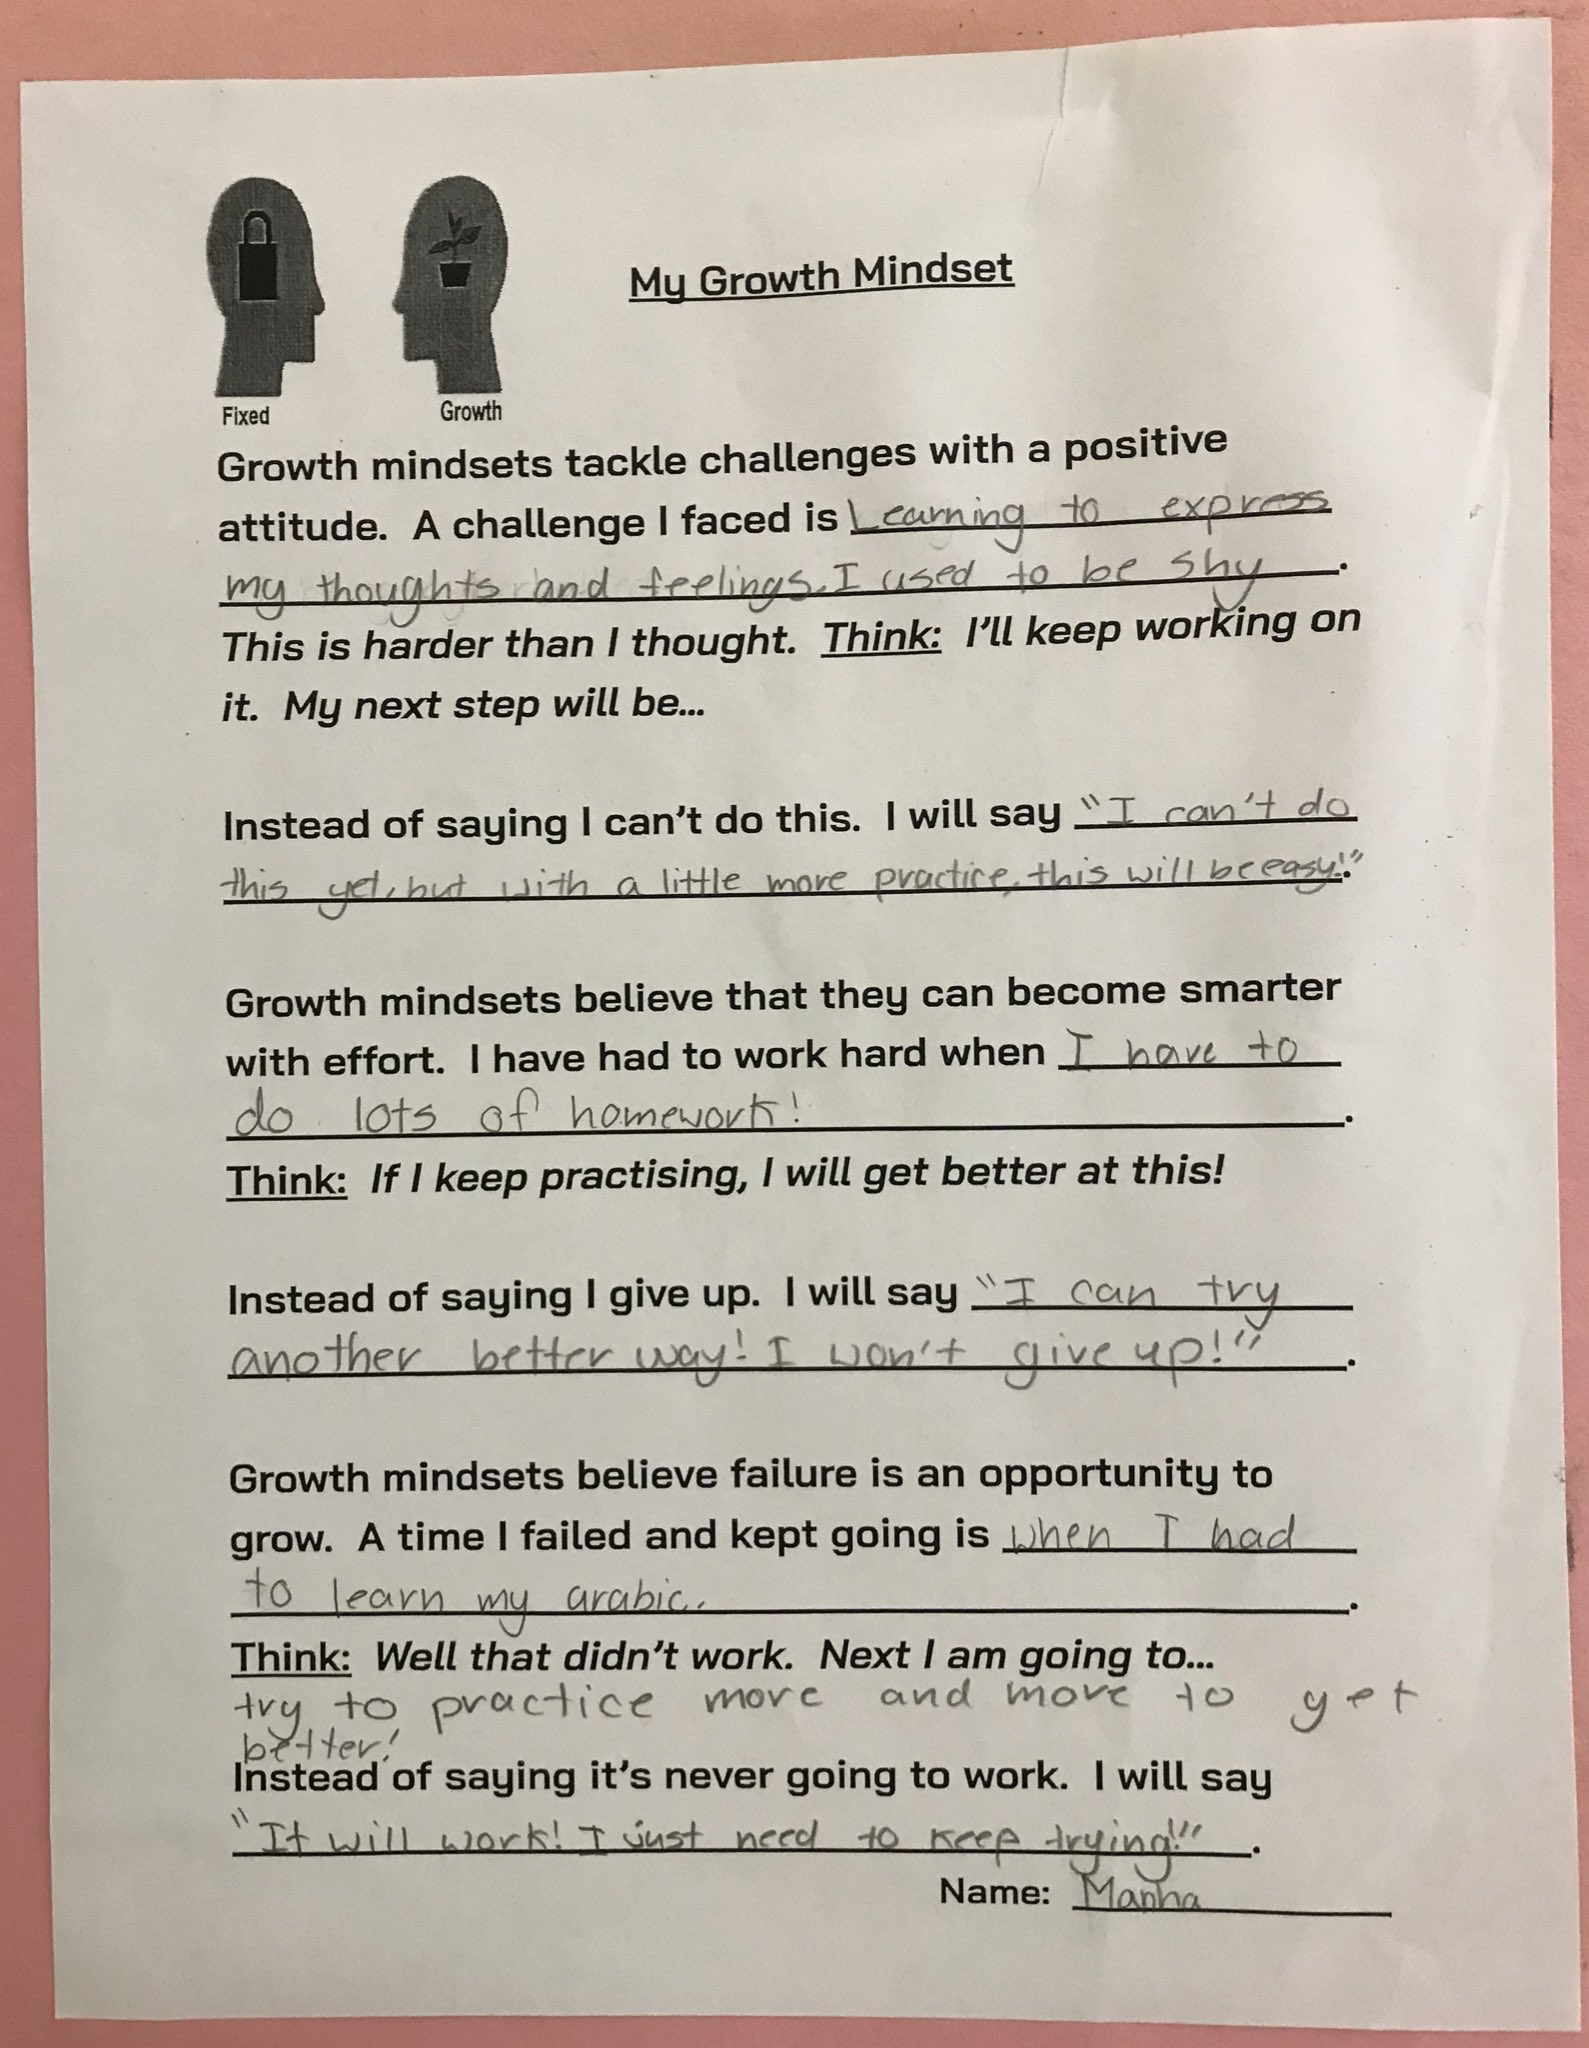 Fixed
Growth
My Growth Mindset
Growth mindsets tackle challenges with a positive
attitude. A challenge I faced is Learning to express
my thoughts and feelings. I used to be shy.
This is harder than I thought. Think: I'll keep working on
it. My next step will be...
Instead of saying I can't do this. I will say "I can't do
this yet, but with a little more practice, this will be easy!".
Growth mindsets believe that they can become smarter
with effort. I have had to work hard when I have to
do lots of homework!.
Think: If I keep practising, I will get better at this!
Instead of saying I give up. I will say "I can try
another better way! I won't give up!".
Growth mindsets believe failure is an opportunity to
grow. A time I failed and kept going is when I had
to learn my arabic..
Think: Well that didn't work. Next I am going to...
try to practice more and more to get
better!
Instead of saying it's never going to work. I will say
"It will work! I just need to keep trying!".
Name: Manha